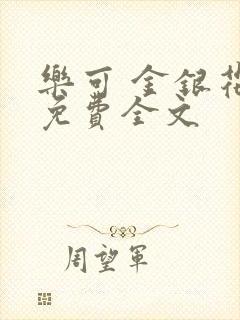 樂可 金銀花
免費全文
周望軍